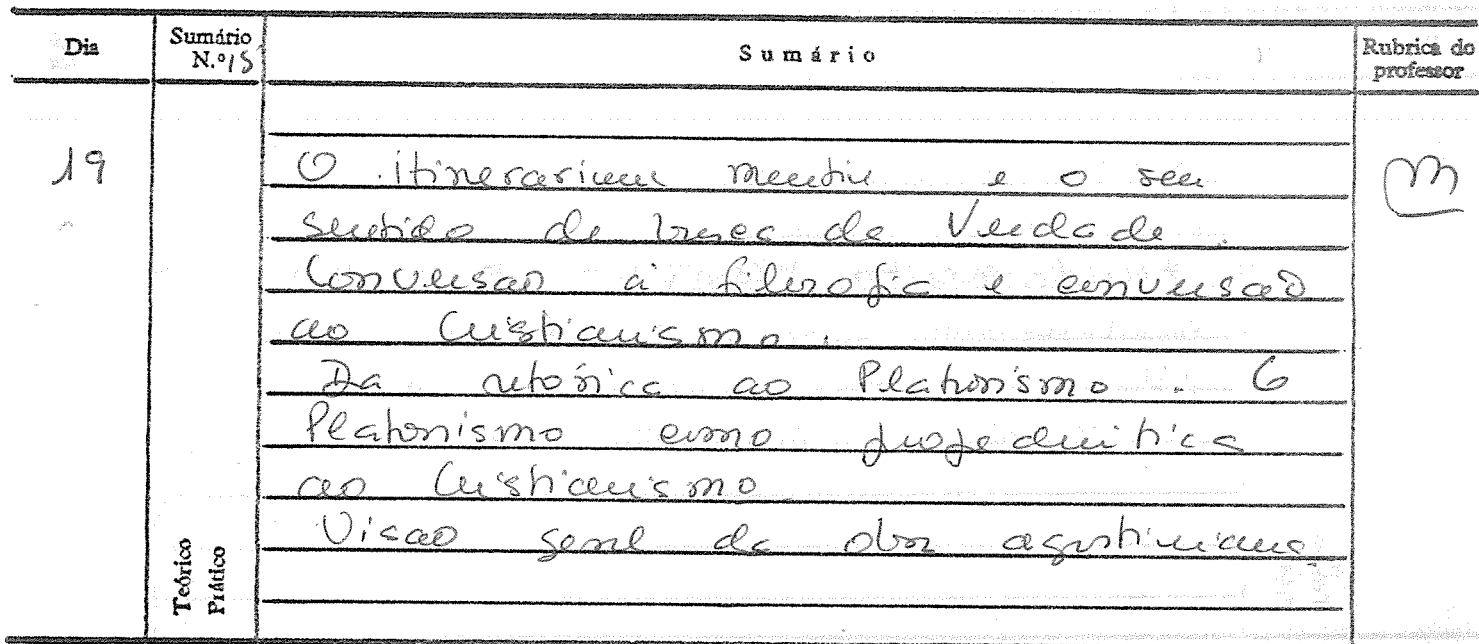 Dia
Sumário N.º 15
Sumário
Rubrica do professor
19
O itinerarium mentis e o seu
sentido de busca da Verdade.
Conversão à filosofia e conversão
ao Cristianismo.
Da retórica ao Platonismo. O
Platonismo como propedêutica
ao Cristianismo
Visão geral da obra agostiniana
Teórico
Prático